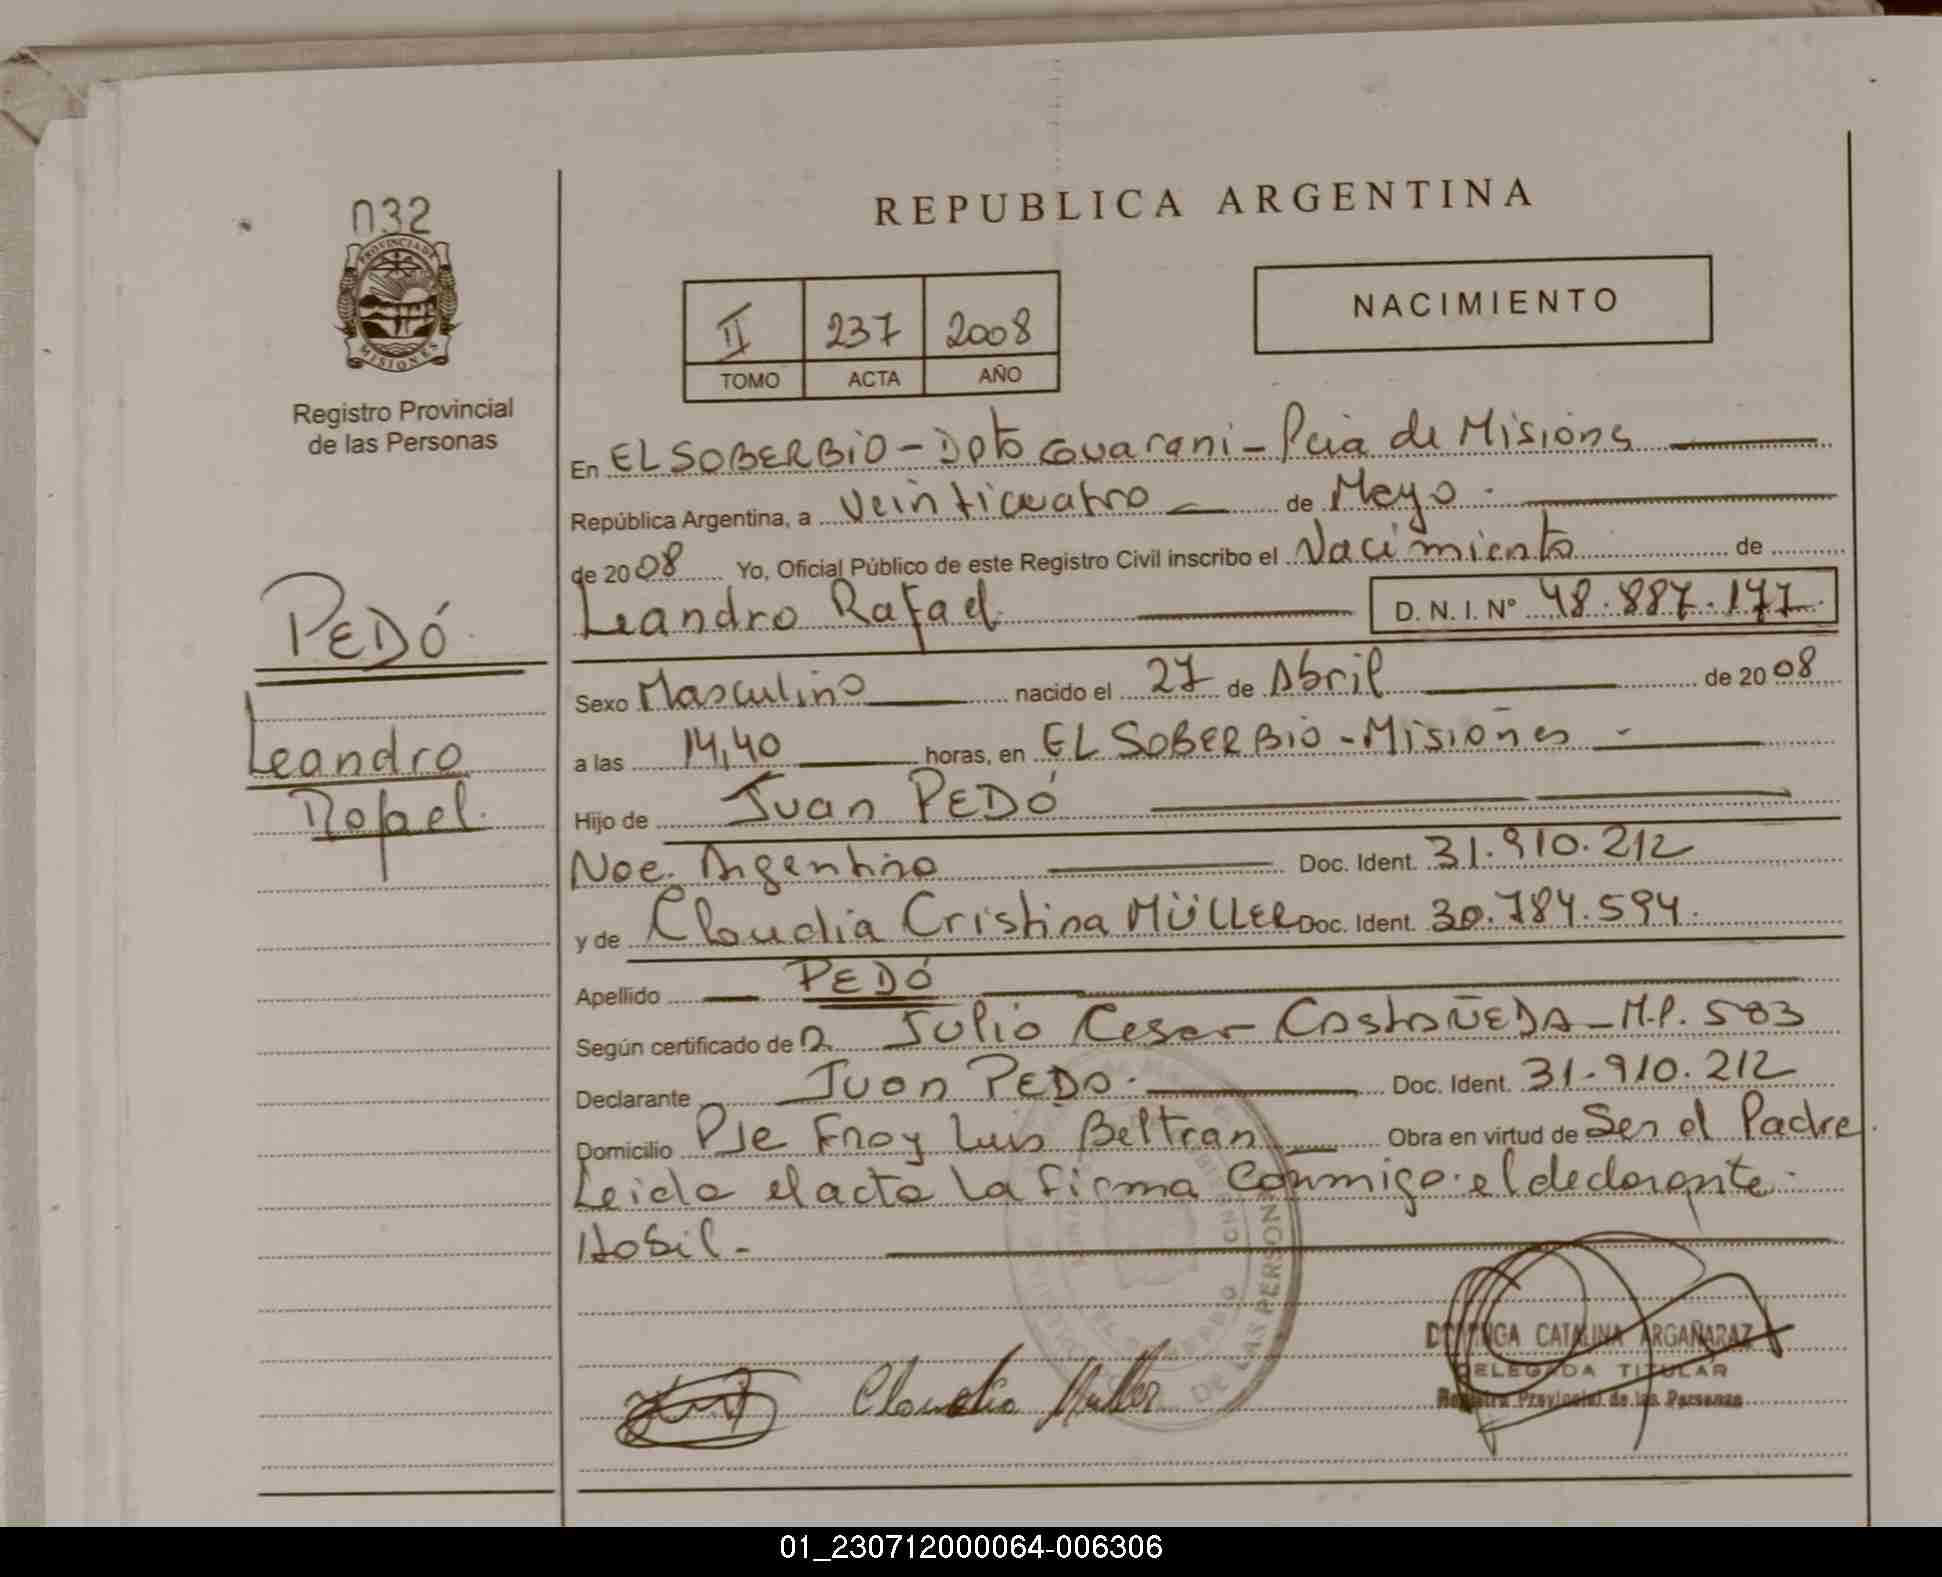 032
PROVINCIA DE
MISIONES
Registro Provincial
de las Personas
PEDÓ.
Leandro
Rafael.
REPUBLICA ARGENTINA
II 237 2008
TOMO ACTA AÑO
NACIMIENTO
En EL SOBERBIO - Dpto Guarani - Pcia de Misiones
República Argentina, a Veinticuatro de Mayo.
de 2008 Yo, Oficial Público de este Registro Civil inscribo el Nacimiento de
Leandro Rafael. D. N. I. Nº 48.887.177.
Sexo Masculino nacido el 27 de Abril de 2008
a las 14,40 horas, en EL SOBERBIO - Misiones -
Hijo de Juan PEDÓ
Noc. Argentino Doc. Ident. 31.910.212
y de Claudia Cristina MÜLLER Doc. Ident. 30.784.594.
Apellido PEDÓ
Según certificado de D. Julio Cesar CASTAÑEDA - M.P. 583
Declarante Juan PEDO. Doc. Ident. 31.910.212
Domicilio Pje Fray Luis Beltran Obra en virtud de Ser el Padre.
Leida el acta la firma Conmigo el declarante.
Habil.-
DE LAS PERSON
Claudia Muller
DOMINGA CATALINA ARGAÑARAZ
DELEGADA TITULAR
Registro Provincial de las Personas
01_230712000064-006306